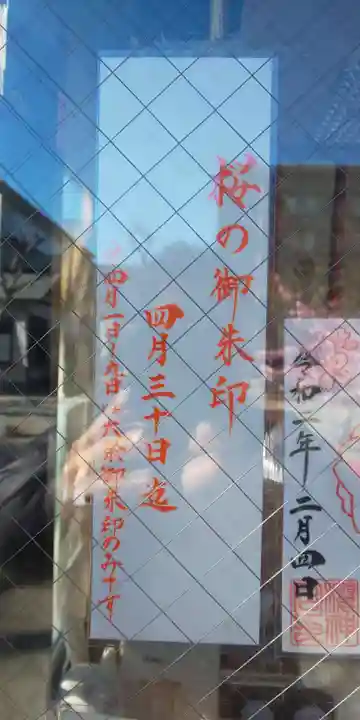 桜の御朱印
四月三十日迄
四月一日〜九日
御朱印のみです
令和二年二月四日